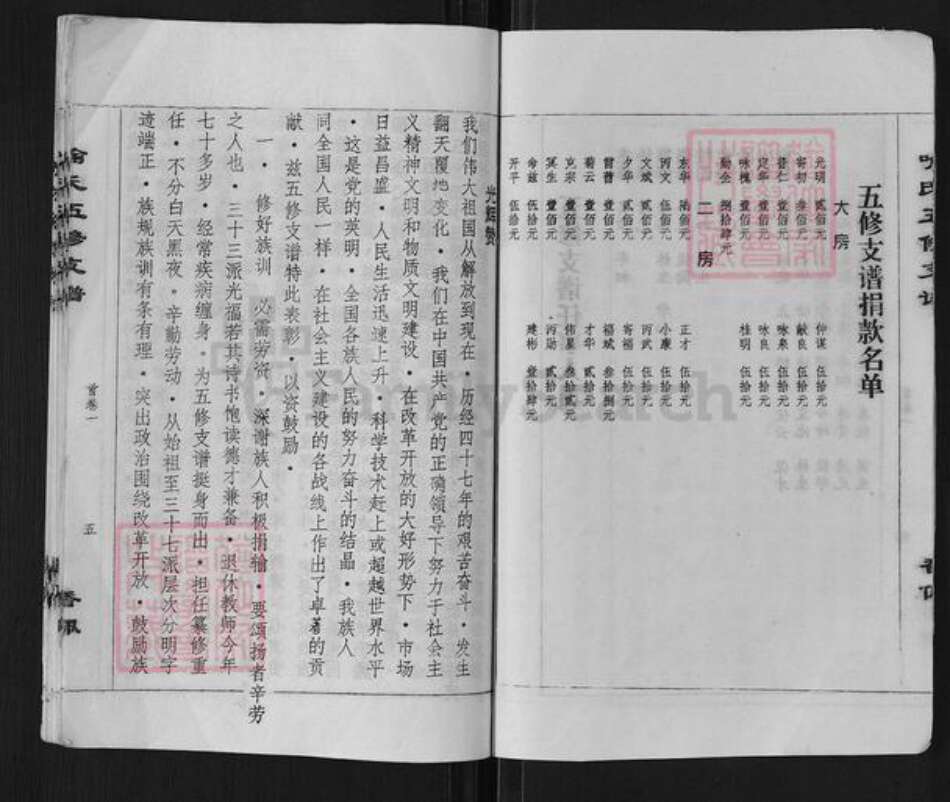 五修支谱捐款名单
大房
光明 贰佰元 仲谋 伍拾元
寄初 叁佰元 献良 伍拾元
晋仁 壹佰元 咏泉 伍拾元
定华 壹佰元 咏良 伍拾元
咏槐 壹佰元 桂明 伍拾元
勋全 捌拾肆元
二房
东华 陆佰元 正才 伍拾元
丙文 伍佰元 小康 伍拾元
文斌 贰佰元 丙武 伍拾元
夕华 贰佰元 寄福 伍拾元
前曹 壹佰元 福斌 叁拾捌元
菊云 壹佰元 才华 贰拾元
克宗 壹佰元 伟星 叁拾贰元
冥生 壹佰元 丙勋 贰拾元
命兹 伍拾元 建彬 壹拾肆元
开平 伍拾元
光辉赞
我们伟大祖国从解放到现在·历经四十七年的艰苦奋斗·发生
翻天覆地变化·我们在中国共产党的正确领导下努力于社会主
义精神文明和物质文明建设·在改革开放的大好形势下·市场
日益昌盛·人民生活迅速上升·科学技术赶上或超越世界水平
·这是党的英明·全国各族人民的努力奋斗的结晶·我族人
同全国人民一样·在社会主义建设的各战线上作出了卓著的贡
献·兹五修支谱特此表彰·以资鼓励·
一·修好族训 必需劳资·深谢族人积极捐输·要颂扬者辛劳
之人也·三十三派光福若其诗书饱读德才兼备·退休教师今年
七十多岁·经常疾病缠身·为五修支谱挺身而出·担任纂修重
任·不分白天黑夜·辛勤劳动·从始祖至三十七派层次分明字
迹端正·族规族训有条有理·突出政治围绕改革开放·鼓励族
首卷一
五
氏五修支谱